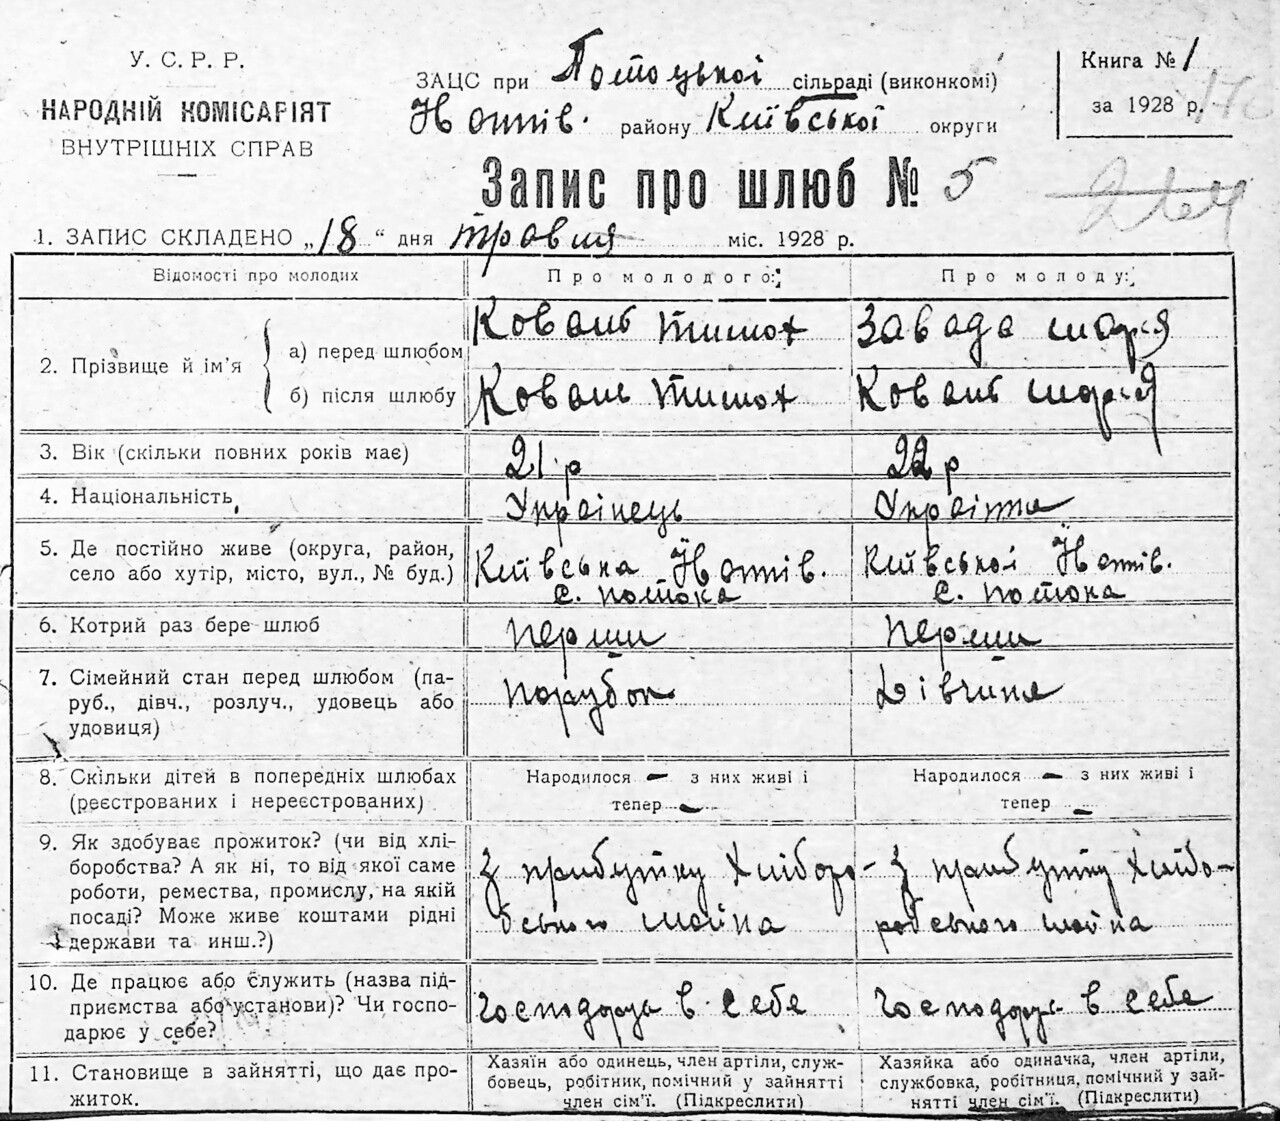 У. С. Р. Р.
НАРОДНІЙ КОМІСАРІЯТ
ВНУТРІШНІХ СПРАВ
ЗАЦС при Потоцької сільраді (виконкомі)
район у Київської округи
Книга № 1
за 1928 р.
Запис про шлюб № 5
1. ЗАПИС СКЛАДЕНО „18“ дня травня міс. 1928 р.
Відомості про молодих
Про молодого:
Про молоду:
2. Прізвище й ім’я
а) перед шлюбом
Коваль Тимох
Завада Марія
б) після шлюбу
Коваль Тимох
Коваль Марія
3. Вік (скільки повних років має)
21 р
22 р
4. Національність
Українець
Українка
5. Де постійно живе (округа, район,
село або хутір, місто, вул., № буд.)
Київська
с. Потока
Київської
с. Потока
6. Котрий раз бере шлюб
перший
перший
7. Сімейний стан перед шлюбом (па-
руб., дівч., розлуч., удовець або
удовиця)
Парубок
Дівчина
8. Скільки дітей в попередніх шлюбах
(реєстрованих і нереєстрованих)
Народилося — з них живі і
тепер —
Народилося — з них живі і
тепер —
9. Як здобуває прожиток? (чи від хлі-
боробства? А як ні, то від якої саме
роботи, ремества, промислу, на якій
посаді? Може живе коштами рідні
держави та инш.?)
З прибутку Хліборо-
бського майна
З прибутку Хлібо-
робського майна
10. Де працює або служить (назва під-
приємства або установи)? Чи госпо-
дарює у себе?
Господарує в себе
Господарує в себе
11. Становище в зайнятті, що дає про-
житок.
Хазяїн або одинець, член артіли, служ-
бовець, робітник, помічний у зайнятті
член сім’ї. (Підкреслити)
Хазяйка або одиначка, член артіли,
службовка, робітниця, помічний у зай-
нятті член сім’ї. (Підкреслити)